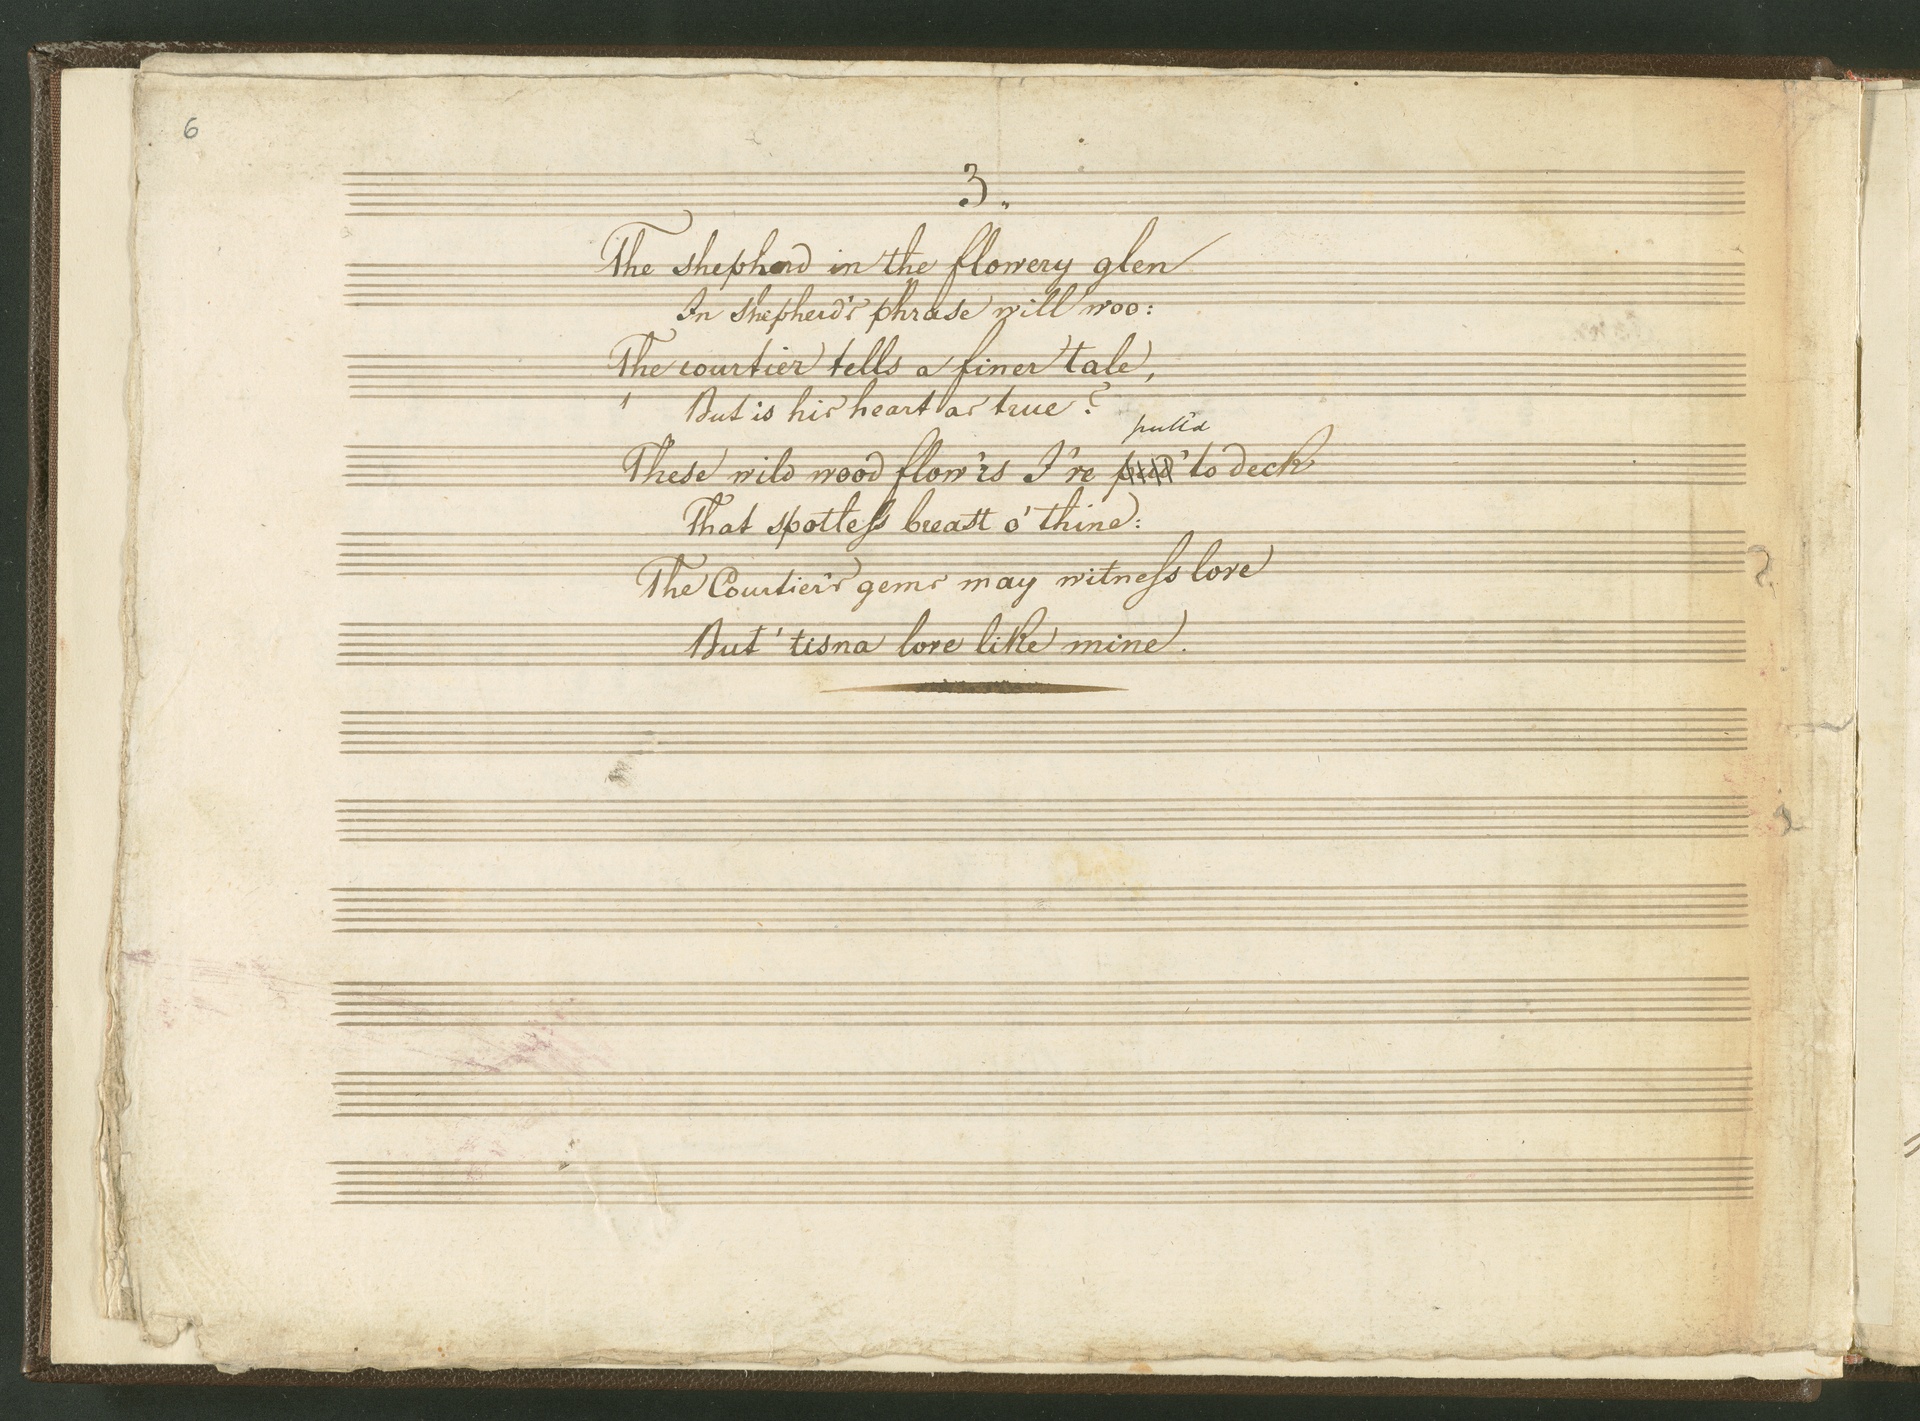 6
3.
The shepherd in the flowery glen
In shepherd's phrase will woo:
The courtier tells a finer tale,
But is his heart as true?
pull'd
These wild wood flow'rs I've to deck
That spotless breast o' thine:
The Courtier's gems may witness love
But 'tisna love like mine.